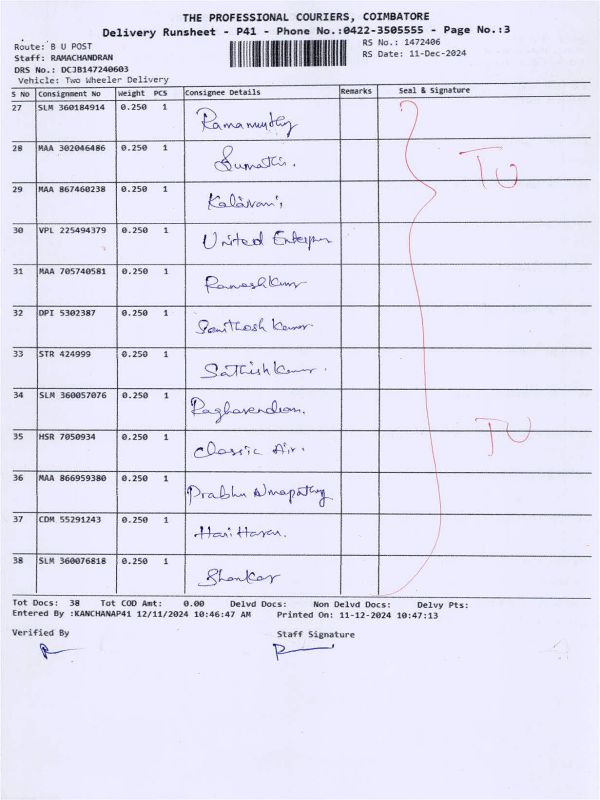 THE PROFESSIONAL COURIERS, COIMBATORE
Delivery Runsheet - P41 - Phone No.:0422-3505555 - Page No.:3
Route: B U POST
RS No.: 1472406
Staff: RAMACHANDRAN
RS Date: 11-Dec-2024
DRS No.: DCJB147240603
Vehicle: Two Wheeler Delivery
S No Consignment No Weight PCS Consignee Details Remarks Seal & Signature
27 SLM 360184914 0.250 1 Ramamurthy
28 MAA 302046486 0.250 1 Sumathi.
TU
29 MAA 867460238 0.250 1 Kalavani,
30 VPL 225494379 0.250 1 United
31 MAA 705740581 0.250 1 Ramesh Kumar
32 DPI 5302387 0.250 1 Santhosh Kumar.
33 STR 424999 0.250 1 Sathish Kumar.
34 SLM 360057076 0.250 1 Raghavendran.
35 HSR 7050934 0.250 1 Classic Air.
TU
36 MAA 866959380 0.250 1 Prabhu
37 CDM 55291243 0.250 1 Hari Haran.
38 SLM 360076818 0.250 1 Shankar
Tot Docs: 38 Tot COD Amt: 0.00 Delvd Docs: Non Delvd Docs: Delvy Pts:
Entered By :KANCHANAP41 12/11/2024 10:46:47 AM Printed On: 11-12-2024 10:47:13
Verified By Staff Signature